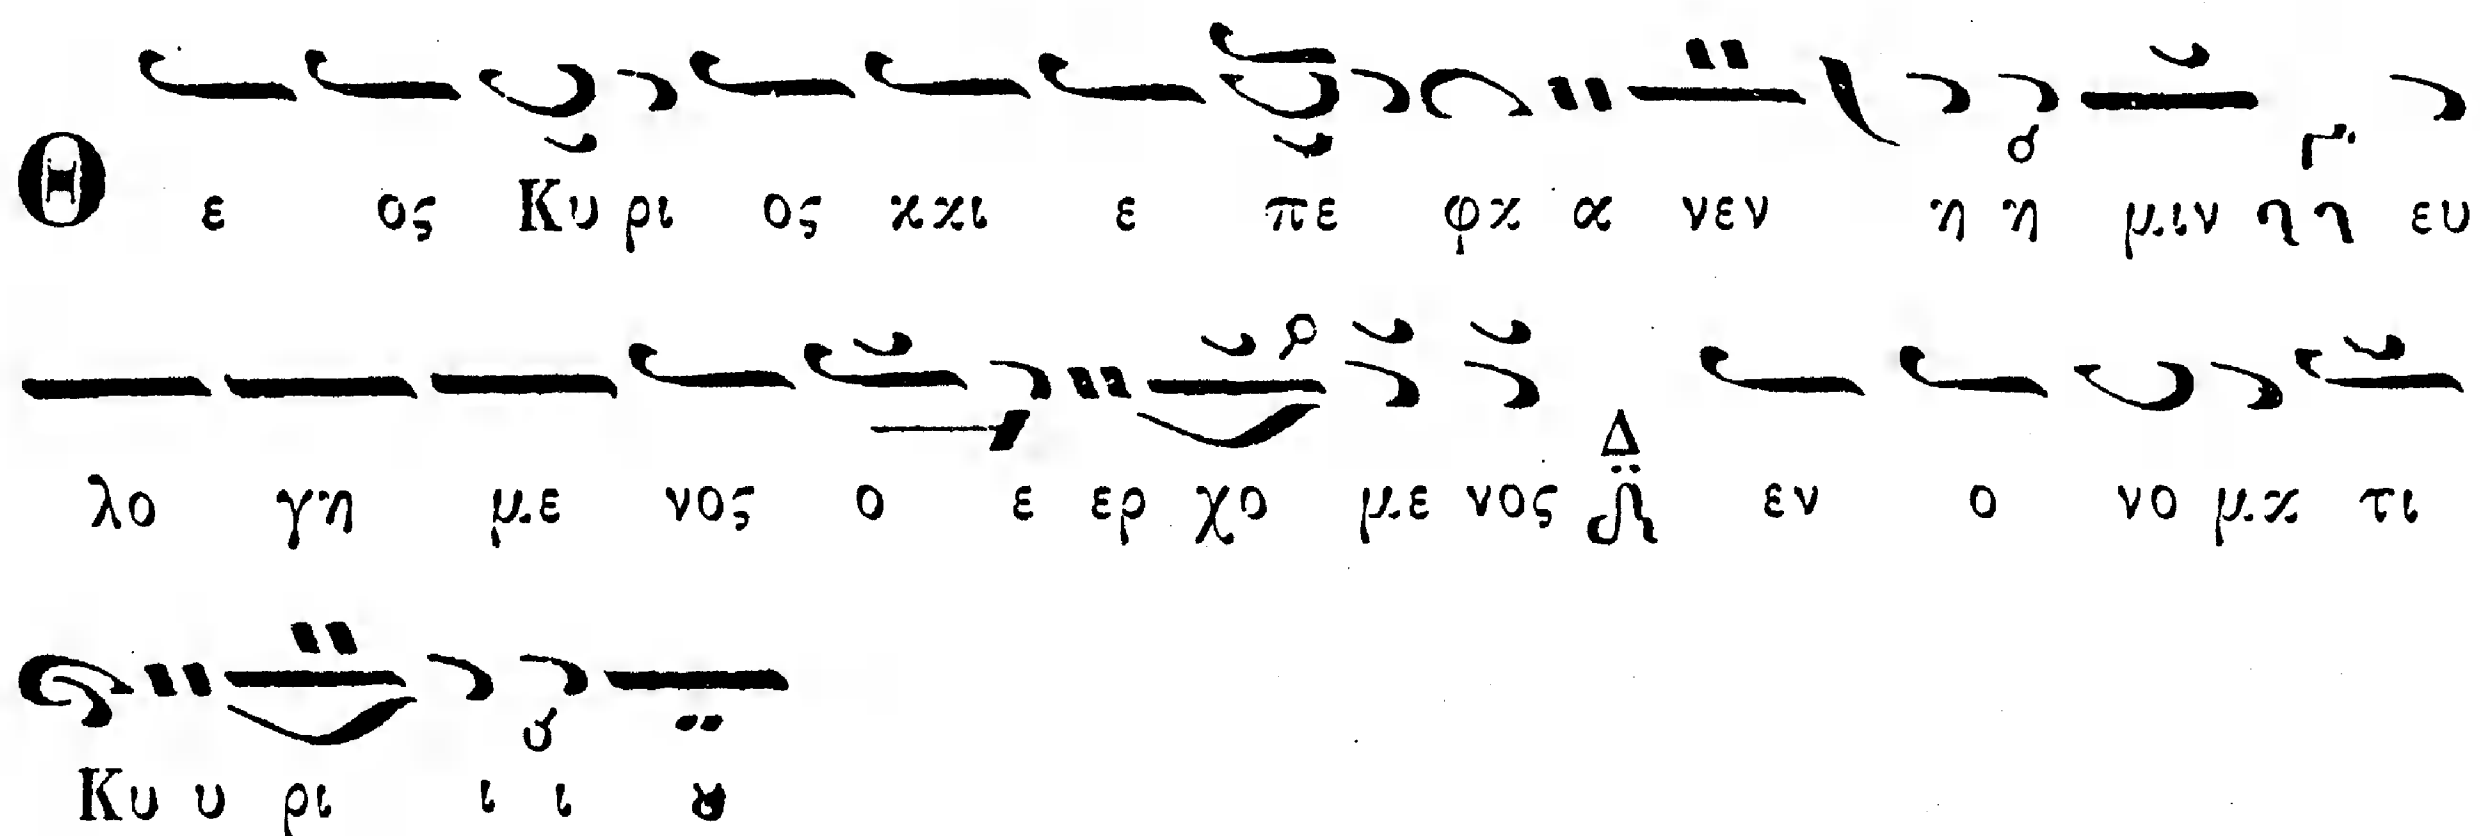 Θ ε ος Κυ ρι ος και ε πε φα α νεν η η μιν ευ
λο γη με νος ο ε ερ χο με νος Δ εν ο νο μα τι
Κυ υ ρι ι ι ȣ